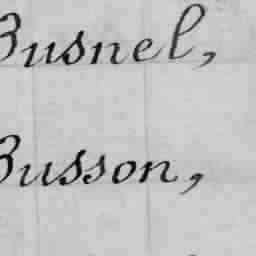 Busnel,
Busson,